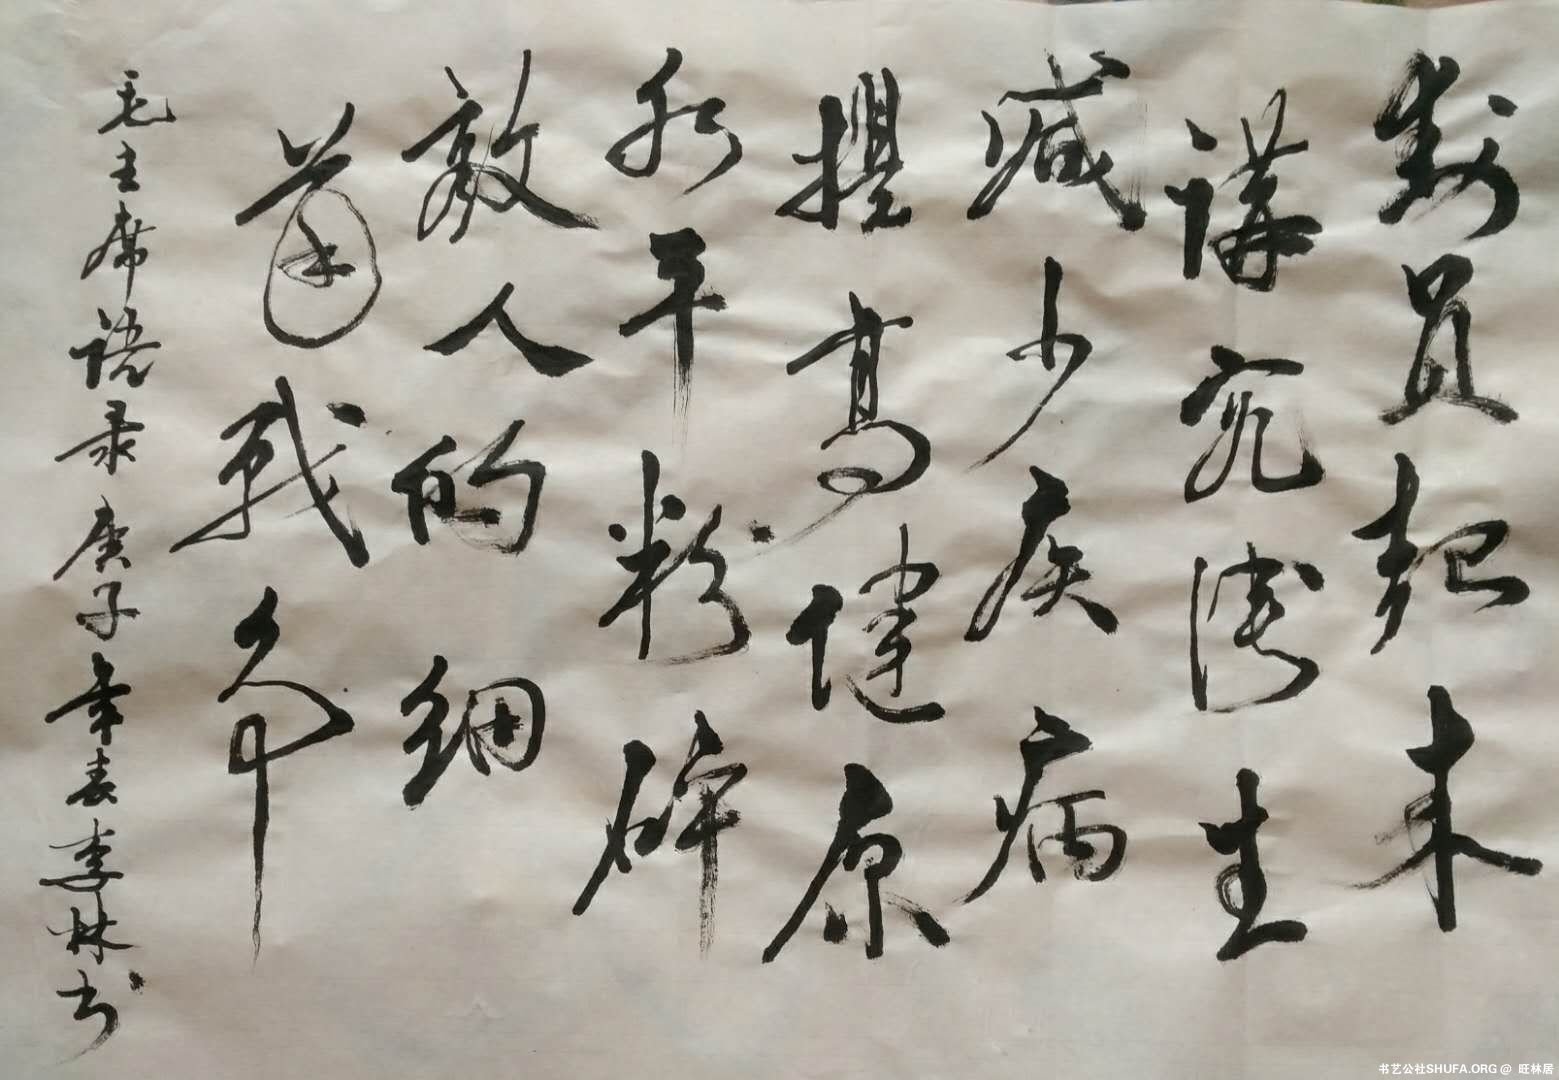 動員起来
講究衛生
減少疾病
提高健康
水平粉碎
敵人的細
菌戰争
毛主席语录庚子年春李林书
书艺公社SHUFA.ORG @ 旺林居